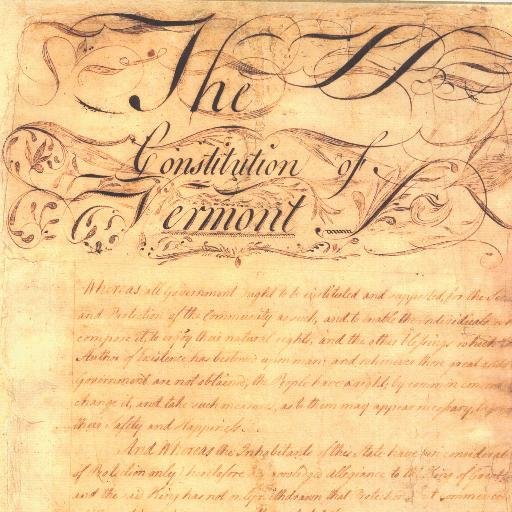 The
Constitution of
Vermont
Whereas all Government ought to be instituted and supported, for the
and Protection of the Community as such, and to enable the individuals
compose it, to enjoy their natural rights, and the other blessings which
Author of existence has bestowed upon man; and whenever those great
government are not obtained, the People have a right, by common
change it, and take such measures, as to them may appear necessary,
their Safety and Happiness
And Whereas the Inhabitants of this State have
of Protection only) heretofore acknowledged allegiance to the King of
and the said King has not only withdrawn that Protection commenced